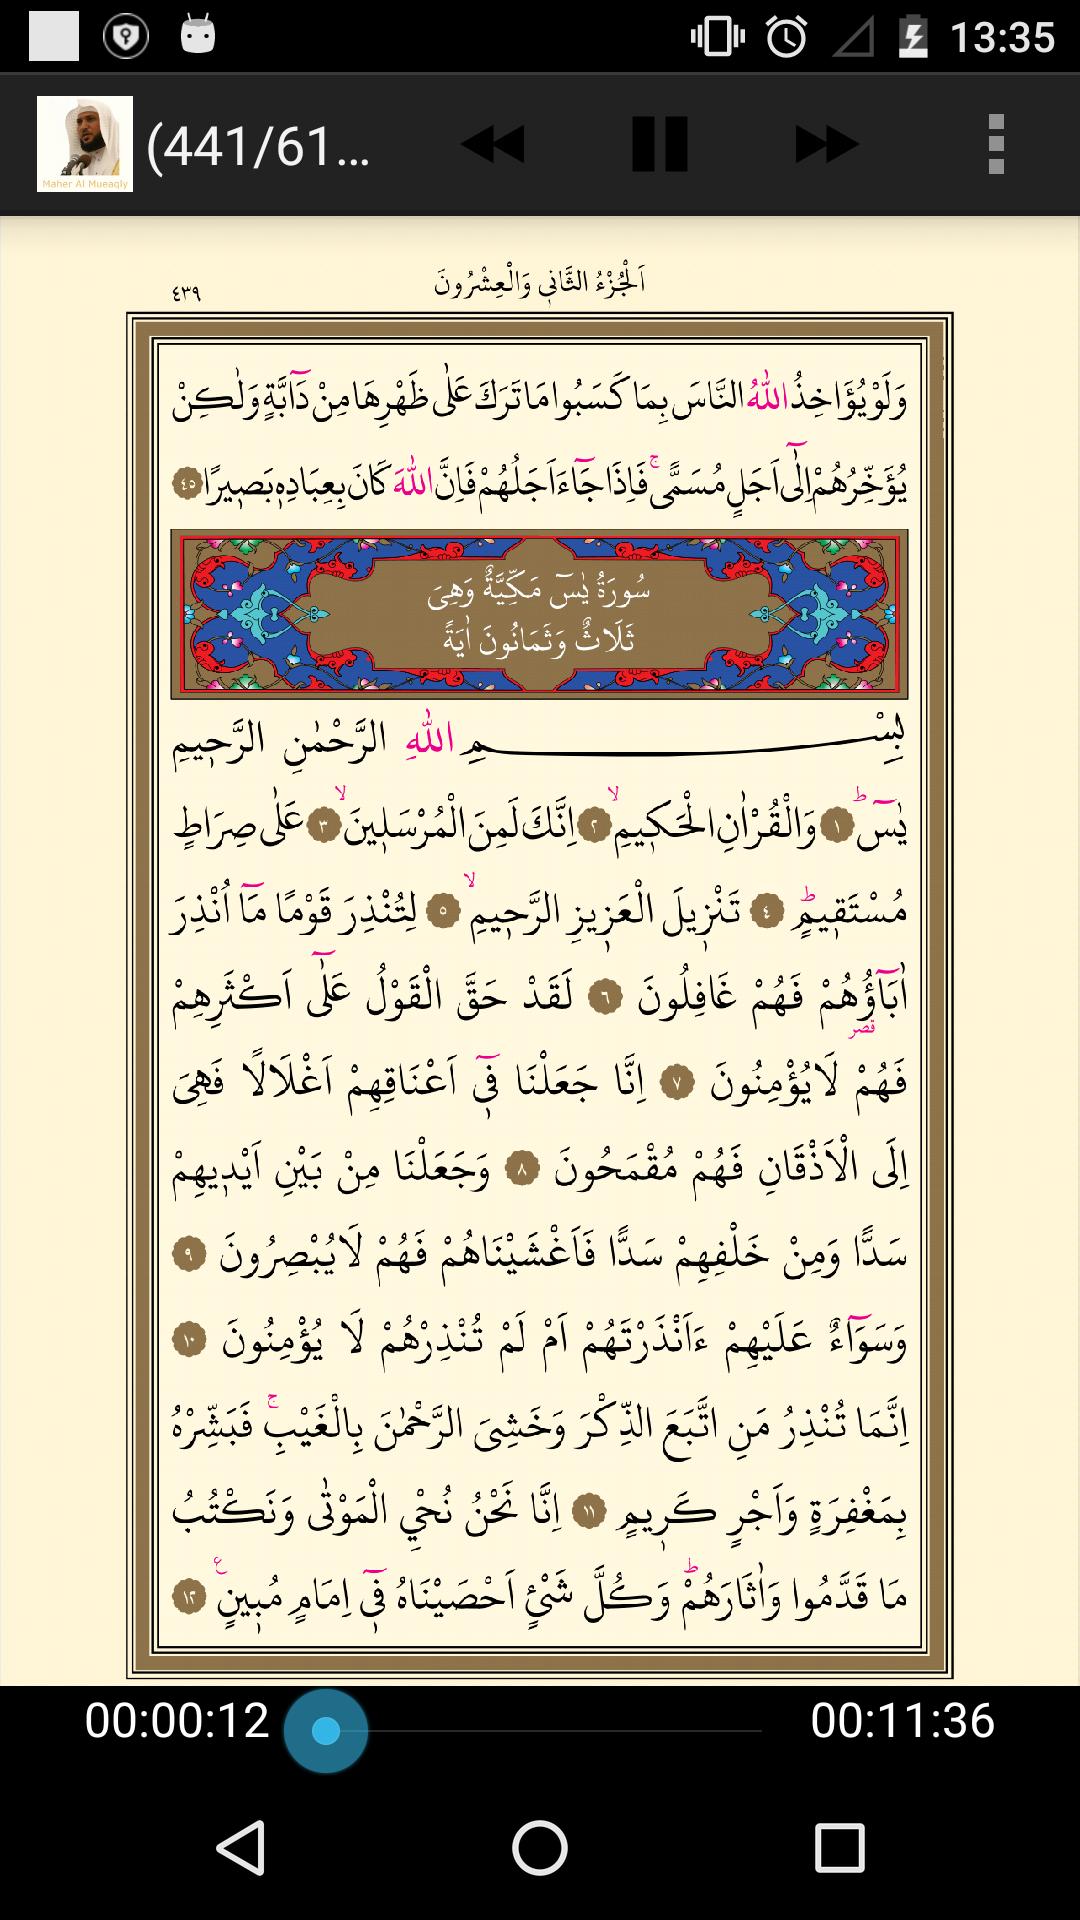 13:35
Maher Al Mueaqly
(441/61...
اَلْجُزْءُ الثَّانٖي وَالْعِشْرُونَ
٤٣٩
وَلَوْ يُؤَاخِذُ اللّٰهُ النَّاسَ بِمَا كَسَبُوا مَا تَرَكَ عَلٰى ظَهْرِهَا مِنْ دَٓابَّةٍ وَلٰكِنْ
يُؤَخِّرُهُمْ اِلٰٓى اَجَلٍ مُسَمًّىۚ فَاِذَا جَٓاءَ اَجَلُهُمْ فَاِنَّ اللّٰهَ كَانَ بِعِبَادِهٖ بَصٖيرًا ٤٥
سُورَةُ يٰسٓ مَكِّيَّةٌ وَهِىَ
ثَلَاثٌ وَثَمَانُونَ اٰيَةً
بِسْمِ اللّٰهِ الرَّحْمٰنِ الرَّحٖيمِ
يٰسٓۜ ١ وَالْقُرْاٰنِ الْحَكٖيمِۙ ٢ اِنَّكَ لَمِنَ الْمُرْسَلٖينَۙ ٣ عَلٰى صِرَاطٍ
مُسْتَقٖيمٍۜ ٤ تَنْزٖيلَ الْعَزٖيزِ الرَّحٖيمِۙ ٥ لِتُنْذِرَ قَوْمًا مَٓا اُنْذِرَ
اٰبَٓاؤُ۬هُمْ فَهُمْ غَافِلُونَ ٦ لَقَدْ حَقَّ الْقَوْلُ عَلٰٓى اَكْثَرِهِمْ
قصر
فَهُمْ لَا يُؤْمِنُونَ ٧ اِنَّا جَعَلْنَا فٖٓى اَعْنَاقِهِمْ اَغْلَالًا فَهِىَ
اِلَى الْاَذْقَانِ فَهُمْ مُقْمَحُونَ ٨ وَجَعَلْنَا مِنْ بَيْنِ اَيْدٖيهِمْ
سَدًّا وَمِنْ خَلْفِهِمْ سَدًّا فَاَغْشَيْنَاهُمْ فَهُمْ لَا يُبْصِرُونَ ٩
وَسَوَٓاءٌ عَلَيْهِمْ ءَاَنْذَرْتَهُمْ اَمْ لَمْ تُنْذِرْهُمْ لَا يُؤْمِنُونَ ١٠
اِنَّمَا تُنْذِرُ مَنِ اتَّبَعَ الذِّكْرَ وَخَشِىَ الرَّحْمٰنَ بِالْغَيْبِۚ فَبَشِّرْهُ
بِمَغْفِرَةٍ وَاَجْرٍ كَرٖيمٍ ١١ اِنَّا نَحْنُ نُحْيِ الْمَوْتٰى وَنَكْتُبُ
مَا قَدَّمُوا وَاٰثَارَهُمْۜ وَكُلَّ شَىْءٍ اَحْصَيْنَاهُ فٖٓى اِمَامٍ مُبٖينٍࣖ ١٢
00:00:12
00:11:36